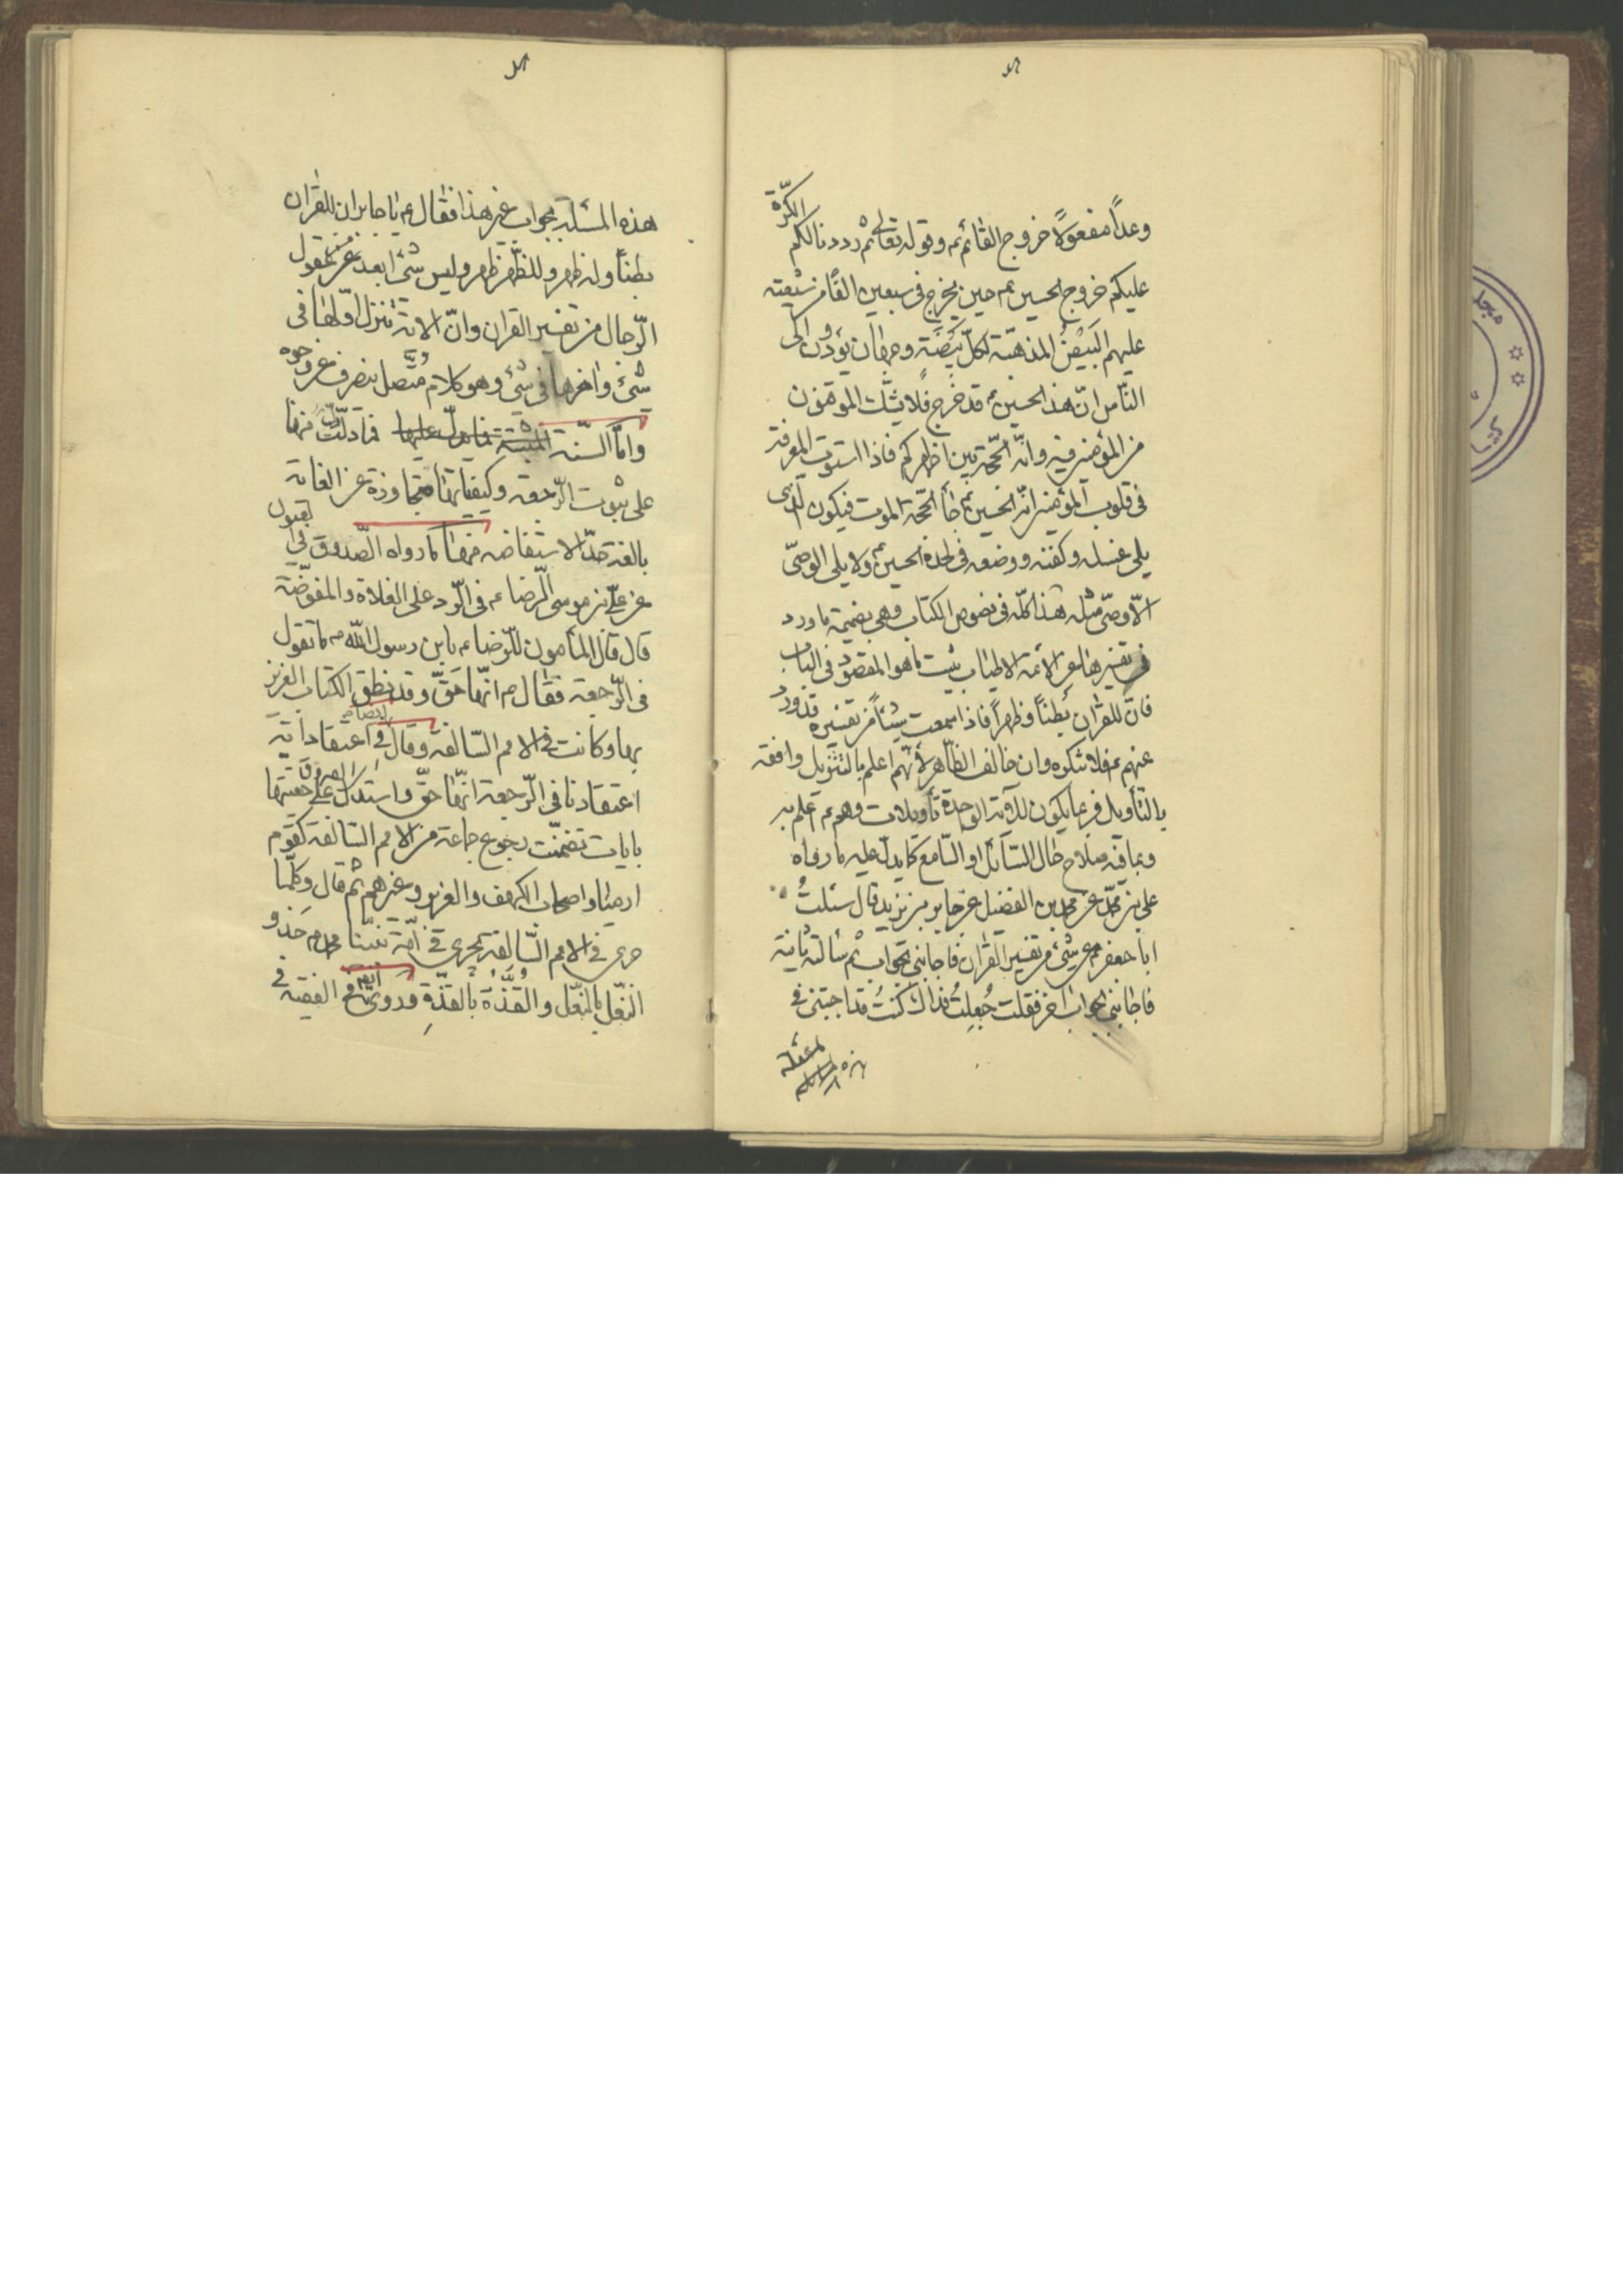 وعداً مفعولاً خروج القائم ع م وقوله تعالى ثم رددنا لكم الكرّة
عليكم خروج الحسين ع م حين يخرج فى سبعين الفاً من شيعته
عليهم البَيْضُ المذهبّة لكلّ بَيْضَةٍ وجهان يؤدون الى
الناس انّ هذا الحسين ع قد خرج فلا يشك المؤمنون
من المؤمنين فيه وانّه الحجّة بين اظهركم فاذا استوت المعرفة
فى قلوب المؤمنين انّه الحسين ع م جاء الحجّة الموت فيكون الّذى
يلى غسله وكفنه ووضعه فى لحده الحسين ع م ولا يلى الوصىّ
الاّ وصىّ مثله هذا كلّه فى نصوص الكتاب وهى بضميمة ما ورد
فى تفسيرها عن الائمة الاطياب يثبت ما هو المقصود فى الباب
فانّ للقران بُطناً وظهراً فاذا سمعت شيئاً من تفسيره قد ورد
عنهم ع م فلا تنكره وان خالف الظّاهر لأنّهم اعلم بالتنزيل وافقه
بالتّأويل فربما يكون للآية الواحدة تأويلات وهم ع م اعلم به
وبما فيه صلاح حال السّائل او السّامع كما يدلّ عليه ما رواه
على بن محمّد عن محمد بن الفضيل عن جابر بن يزيد قال سئلتُ
ابا جعفر ع م عن شىء من تفسير القرآن فاجابنى بجواب ثم سألته ثانية
فاجابنى بجواب اخر فقلت جُعِلتُ فداك كنتُ قد اجبتنى فى
هذه المسئلة بجواب غير هذا فقال ع م يا جابر ان للقران
بطناً وله ظهر وللظّهر ظهر وليس شئ ابعد من عقول
الرّجال من تفسير القران وانّ الاية تنزل اوّلها فى
شىء واخرها فى شىء وهو كلام مُتَّصل ينصرف عن وجوه
وامّا السنّة فما دلّت منها
على ثبوت الرّجعة وكيفياتها متجاوزة عن الغاية
بالغة حدّ الاستفاضه منها ما رواه الصّدوق فى
عن علىّ بن موسى الرّضا ع م فى الرّد على الغلاة والمفوّضة
قال قال المأمون للرّضا ع م يابن رسول اللّه ص ما تقول
فى الرّجعة فقال ع م انّها حَقّ وقد نطق الكتاب العزيز
بها وكانت فى الامم السّالفة وقال ايضاً فى اعتقاداته
اعتقادنا فى الرّجعة انّها حقّ واستدل الصدوق على حقيتها
بايات تضمنّت رجوع جماعة من الامم السّالفة كقوم
ارميا واصحاب الكهف والعزير وغيرهم ثم قال وكلّما
جرى فى الامم السّالفة يجرى فى امّة نبيّنا محمد ص حَذو
النّعل بالنّعل والقُذَّةُ بالقذّةِ وروى ايضاً فى الفقيه فى